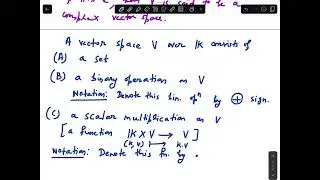 is said to be a
complex vector space.
A vector space V over K consists of
(A) a set
(B) a binary operation on V
Notation: Denote this bin. opⁿ by ⊕ sign.
(C) a scalar multiplication on V
[a function K × V → V ]
(k, v) ↦ k.v
Notation: Denote this fn. by .